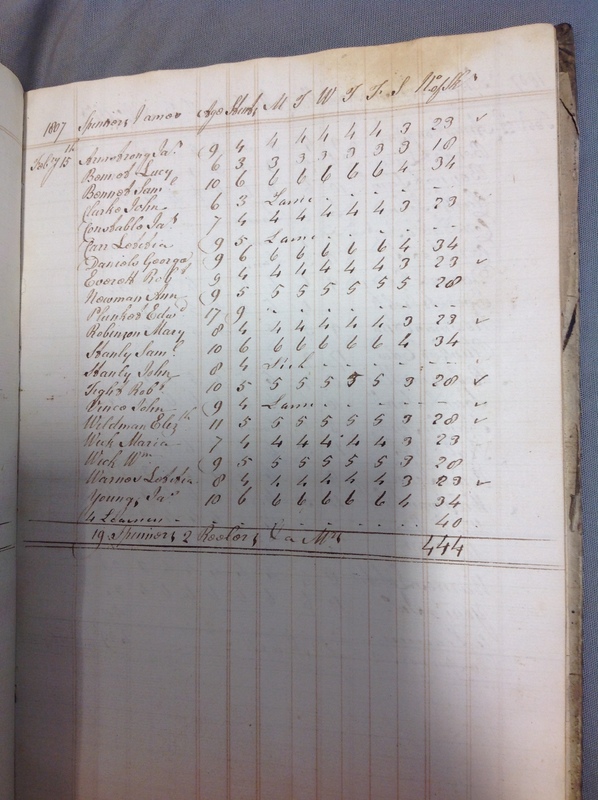 1807 Spinners Names Age Skeins M T W T F S No of Sks
Feby 15th Armstrong Jas 9 4 4 4 4 4 4 3 23 ✓
Bennet Lucy 6 3 3 3 3 3 3 3 18
Bennet Saml 10 6 6 6 6 6 6 4 34
Clarke John 6 3 Lame - - - - -
Constable Jas 7 4 4 4 4 4 4 3 23
Carr Letitia 9 5 Lame - - - - -
Daniels George 9 6 6 6 6 6 6 4 34
Everett Robt 9 4 4 4 4 4 4 3 23 ✓
Newman Ann 9 5 5 5 5 5 5 5 28
Plunket Edwd 17 9 - - - - - - -
Robinson Mary 8 4 4 4 4 4 4 3 23 ✓
Stanly Saml 10 6 6 6 6 6 6 4 34
Stanly John 8 4 Sick - - - - -
Tight Robt 10 5 5 5 5 5 5 3 28 ✓
Vince John 9 4 Lame - - - - - ✓
Wildman Elizth 11 5 5 5 5 5 5 3 28 ✓
Wick Maria 7 4 4 4 4 4 4 3 23
Wick Wm 9 5 5 5 5 5 5 3 28
Warner Letitia 8 4 4 4 4 4 4 3 23 ✓
Young Jas 10 6 6 6 6 6 6 4 34
4 Learners - - - - - - - 40
19 Spinners 2 Reelers & a Mrs 444